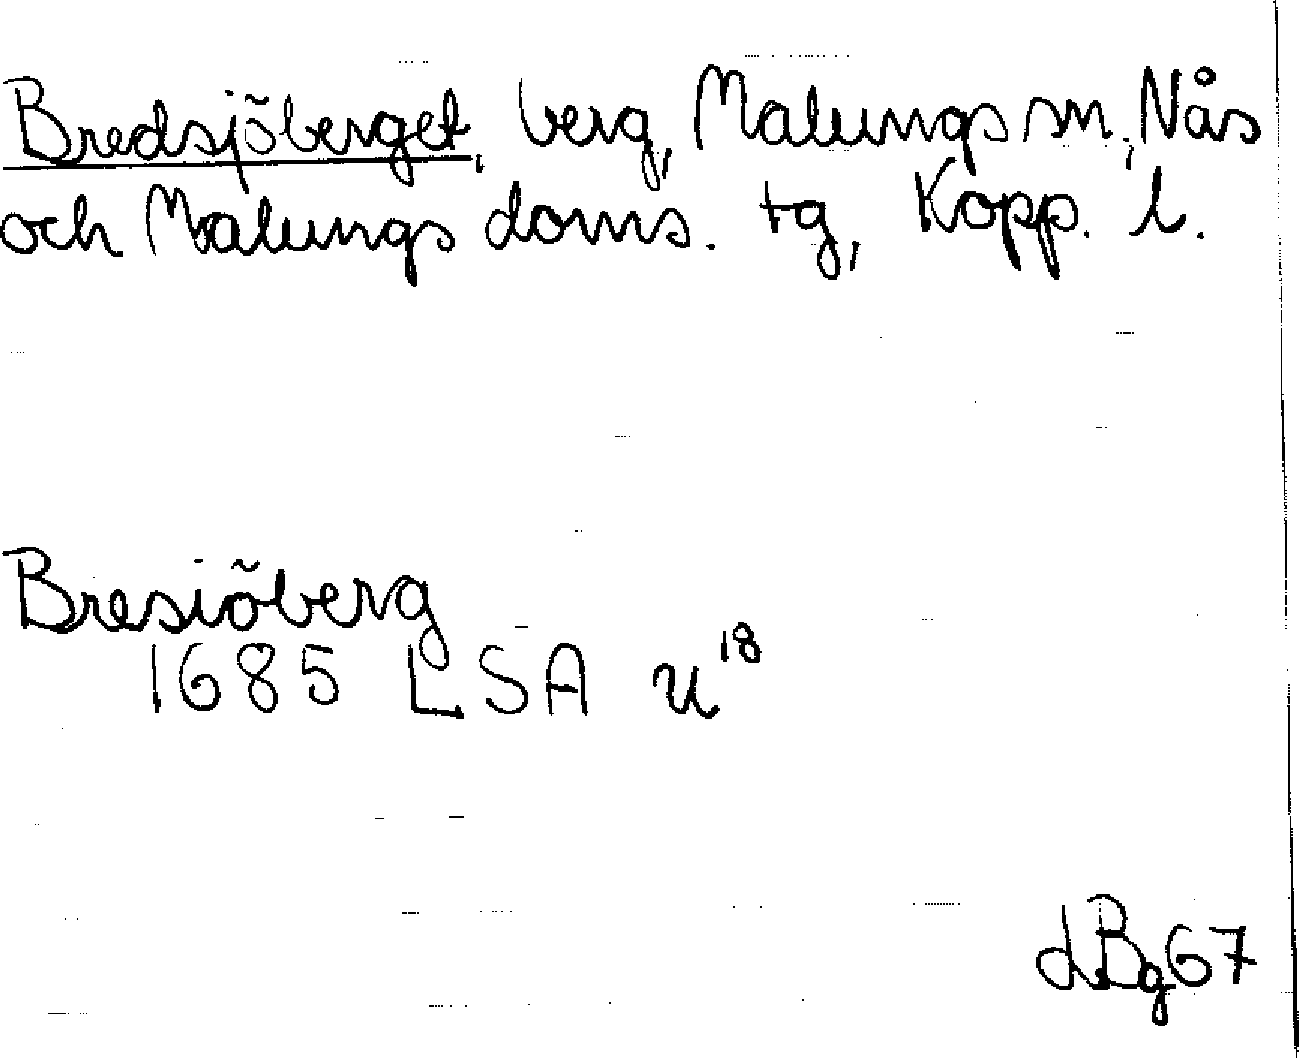 Bredsjöberget, berg, Malungs sn, Nås
och Malungs doms. tg, Kopp. l.
Bresiöberg
1685 LSA U¹⁸
dBg67